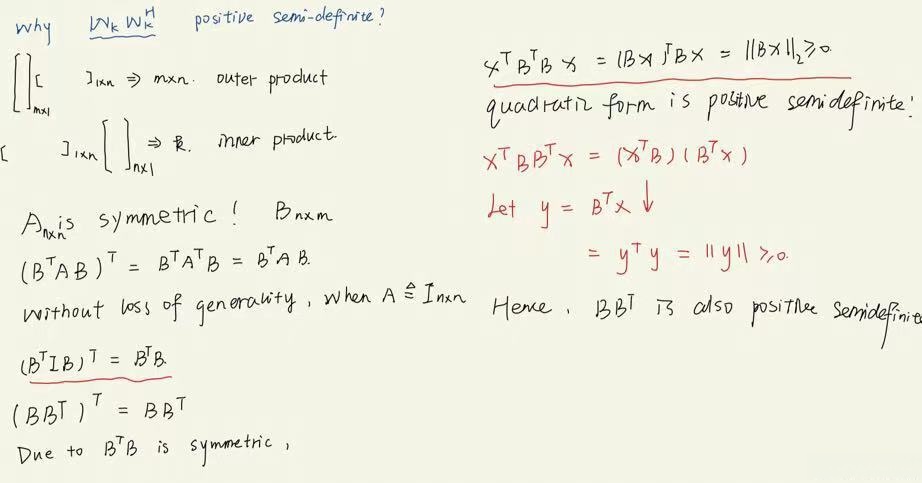 why W_k W_k^H positive semi-definite?
[ ]_{m×1} [ ]_{1×n} ⇒ m×n. outer product
[ ]_{1×n} [ ]_{n×1} ⇒ . inner product.
A_{n×n} is symmetric! B_{n×m}
(B^T A B)^T = B^T A^T B = B^T A B.
without loss of generality, when A ≜ I_{n×n}
(B^T I B)^T = B^T B.
(B B^T)^T = B B^T
Due to B^T B is symmetric,
x^T B^T B x = (Bx)^T Bx = ||Bx||_2 ≥ 0.
quadratic form is positive semidefinite!
x^T B B^T x = (x^T B) (B^T x)
Let y = B^T x ↓
= y^T y = ||y|| ≥ 0.
Hence, B B^T is also positive semidefinite